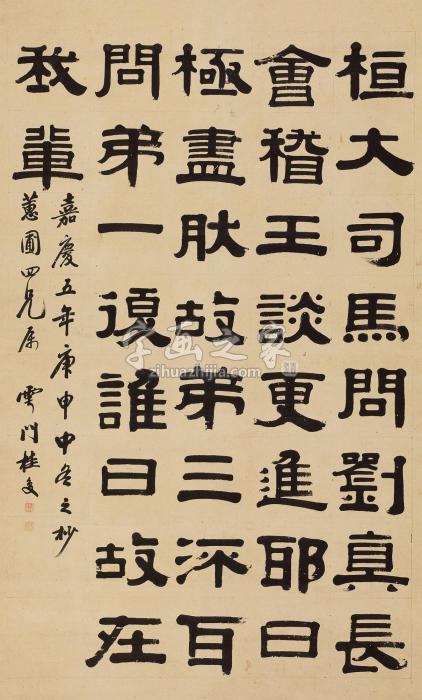 桓大司馬問劉真長
會稽王談更進耶曰
極盡肰故弟三流百
問弟一復誰曰故在
我輩
嘉慶五年庚申中冬之杪
蕙圃四兄属 雲門桂
字画之家
zihuazhijia.com